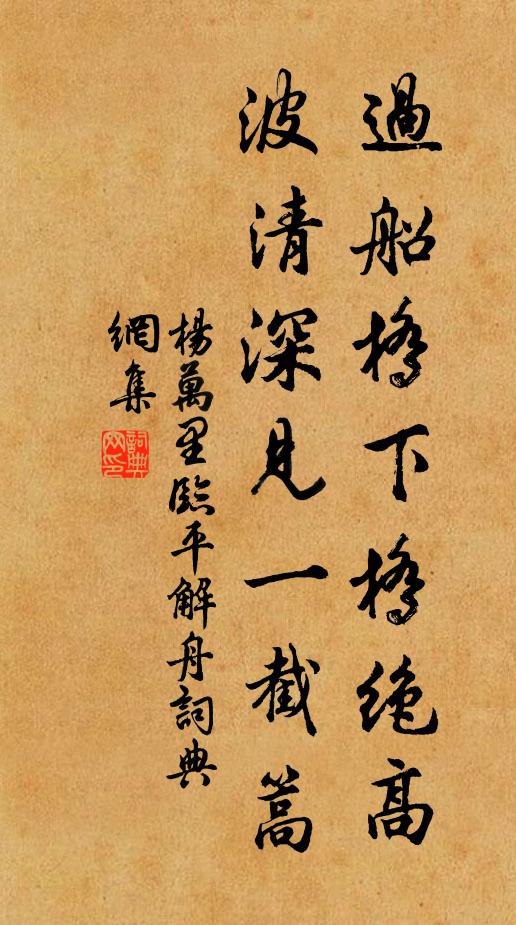 過船橋下橋絶高
波清深見一截篙
楊萬里臨平解舟詞典
網集
詞典
网印